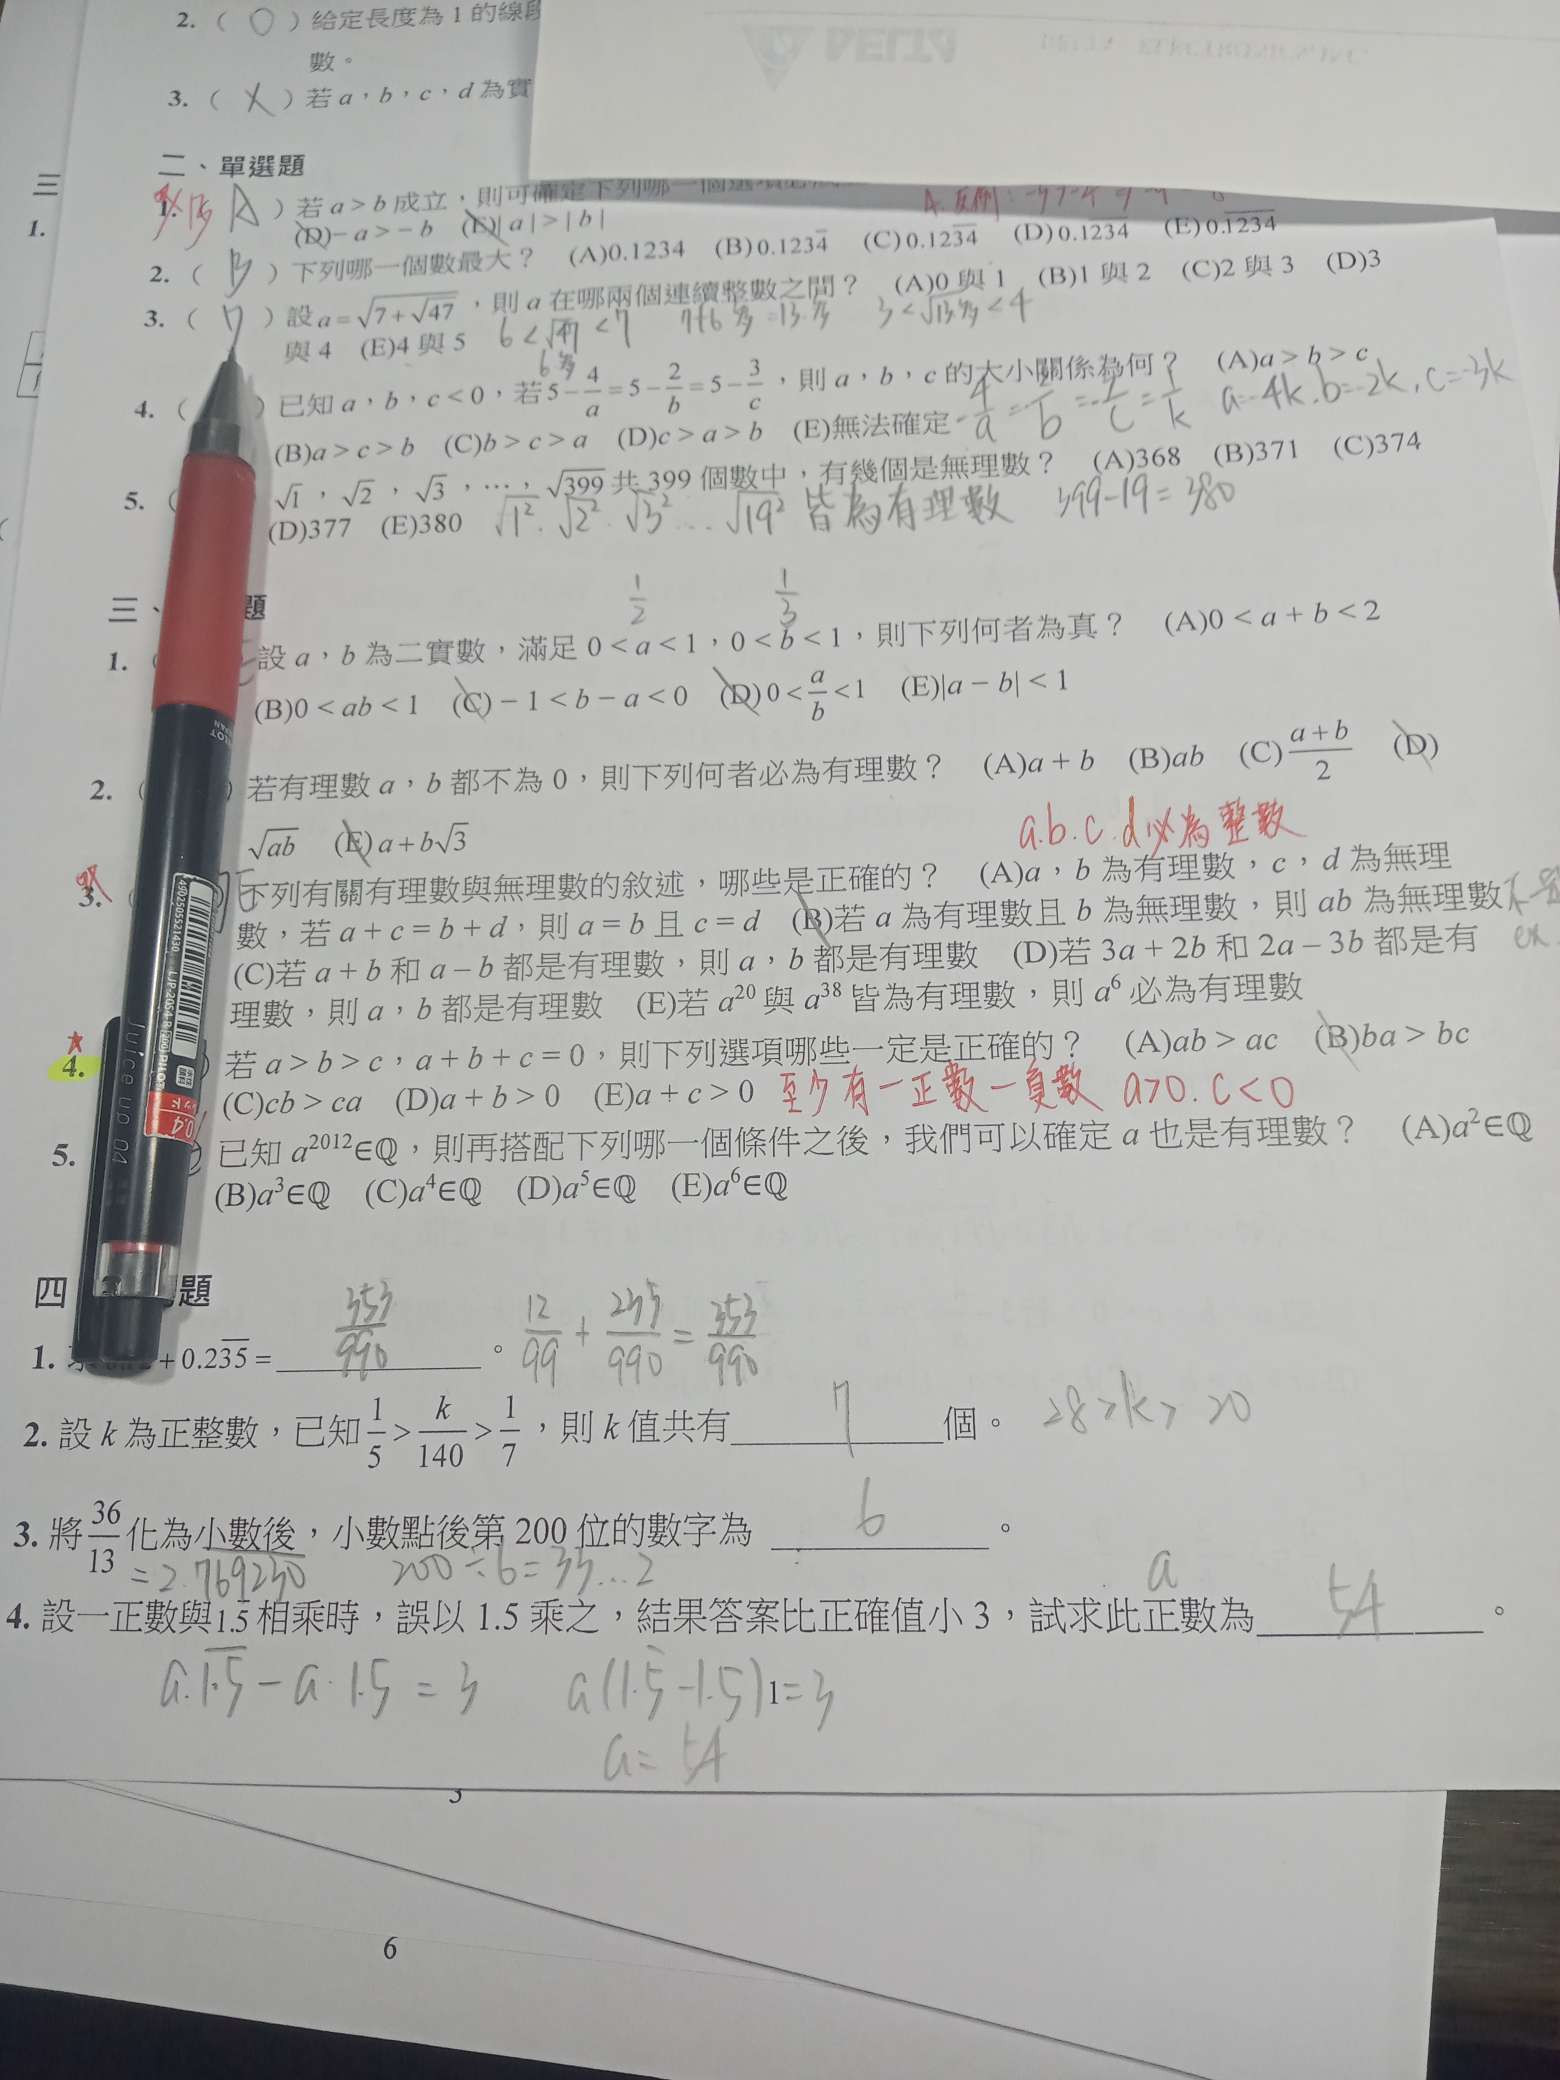 2. ( ○ ) 給定長度為 1 的線段
數。
3. ( X ) 若 a,b,c,d 為實
二、單選題
A ) 若 a > b 成立,則可確定下列哪一個選項必
(D) − a > − b (E)| a | > | b |
2. ( B ) 下列哪一個數最大? (A)0.1234 (B)0.1234̅ (C)0.123̅4̅ (D)0.12̅3̅4̅ (E)0.1̅2̅3̅4̅
3. ( ) 設 a = √(7 + √47) ,則 a 在哪兩個連續整數之間? (A)0 與 1 (B)1 與 2 (C)2 與 3 (D)3
與 4 (E)4 與 5 6 < √47 < 7 3 < < 4
4. ( ) 已知 a,b,c < 0,若 5 − 4/a = 5 − 2/b = 5 − 3/c ,則 a,b,c 的大小關係為何? (A)a > b > c
a=-4k, b=-2k, c=-3k
(B)a > c > b (C)b > c > a (D)c > a > b (E)無法確定
5. ( √1,√2,√3,…,√399 共 399 個數中,有幾個是無理數? (A)368 (B)371 (C)374
(D)377 (E)380 √1². √2². √3² ... √19² 皆為有理數 399-19=380
1/2 1/3
三、 題
1. ( 設 a,b 為二實數,滿足 0 < a < 1,0 < b < 1,則下列何者為真? (A)0 < a + b < 2
(B)0 < ab < 1 (C) − 1 < b − a < 0 (D) 0 < a/b < 1 (E)|a − b| < 1
2. ( ) 若有理數 a,b 都不為 0,則下列何者必為有理數? (A)a + b (B)ab (C) (a + b)/2 (D)
√ab (E) a + b√3
a.b.c.d 必為整數
3. ( 下列有關有理數與無理數的敘述,哪些是正確的? (A)a,b 為有理數,c,d 為無理
數,若 a + c = b + d,則 a = b 且 c = d (B)若 a 為有理數且 b 為無理數,則 ab 為無理數
(C)若 a + b 和 a − b 都是有理數,則 a,b 都是有理數 (D)若 3a + 2b 和 2a − 3b 都是有
理數,則 a,b 都是有理數 (E)若 a²⁰ 與 a³⁸ 皆為有理數,則 a⁶ 必為有理數
4. ) 若 a > b > c,a + b + c = 0,則下列選項哪些一定是正確的? (A)ab > ac (B)ba > bc
(C)cb > ca (D)a + b > 0 (E)a + c > 0 至少有一正數一負數 a>0. c<0
5. 已知 a²⁰¹²∈ℚ,則再搭配下列哪一個條件之後,我們可以確定 a 也是有理數? (A)a²∈ℚ
(B)a³∈ℚ (C)a⁴∈ℚ (D)a⁵∈ℚ (E)a⁶∈ℚ
四 題
1. + 0.23̅5̅ = 353/990 。 12/99 + 235/990 = 353/990
2. 設 k 為正整數,已知 1/5 > k/140 > 1/7,則 k 值共有 7 個。 28>k>20
3. 將 36/13 化為小數後,小數點後第 200 位的數字為 6 。
=2.7̅6̅9̅2̅3̅0̅ 200÷6=33...2
a
4. 設一正數與 1.5̅ 相乘時,誤以 1.5 乘之,結果答案比正確值小 3,試求此正數為 54 。
a.1.5̅ - a.1.5 = 3 a(1.5̅-1.5)=3
1
a= 54
6